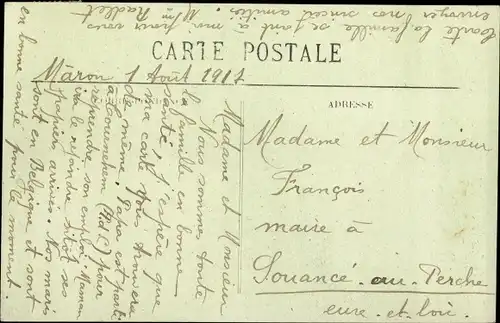 CARTE POSTALE
Maron 1 Août 1917
ADRESSE
Madame et Monsieur
François
maire à
Souancé-au-Perche
eure-et-loir
Madame et Monsieur
Nous sommes toute
la famille en bonne
santé, j'espère que
ma carte vous trouvera
de même. Papa est parti
à (P.d.C.) pour
reprendre son emploi. Maman
ira le rejoindre sitôt ses
papiers arrivés. Nos maris
sont en Belgique et sont
en bonne santé pour le moment.
toute la famille se joint à moi pour vous
envoyer nos sincères amitiés. Mme Radlet